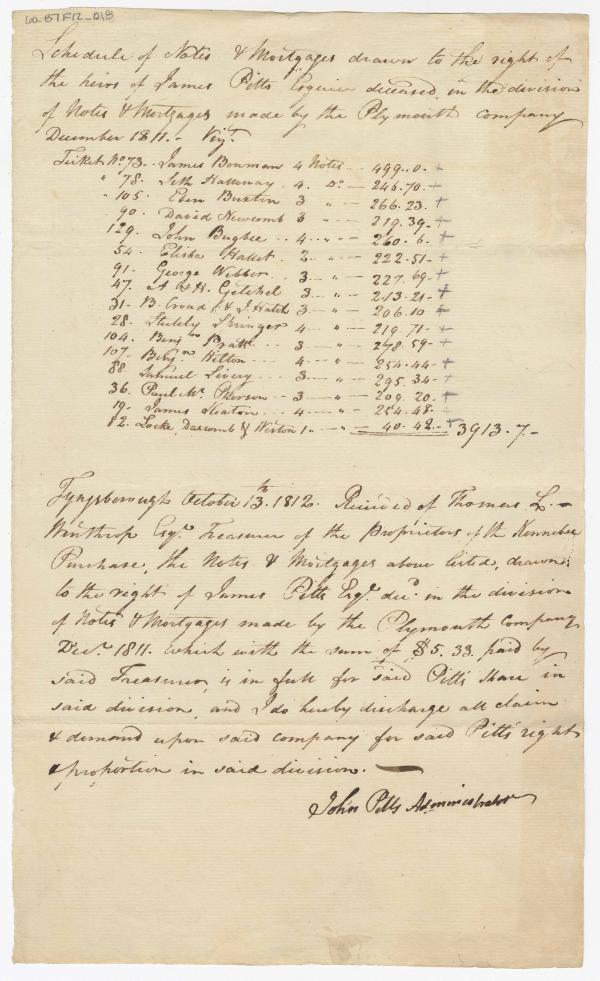 Schedule of Notes & Mortgages drawn to the right of
the heirs of James Pitts Esquire deceased, in the division
of Notes & Mortgages made by the Plymouth company
December 1811.- Viz.
Ticket No. 73. James Bowman 4 Notes .. 499..0. +
" 78. Seth Hathaway . 4. Do - 246.70. +
" 105. Eben Buxton 3 " - - 266.23. +
" 90. David Newcomb 3 " - - 219.39. +
129. John Bugbee .. 4 .. " - - 260.6. +
54. Elisha Hallet 2 - " - 222.51. +
91. George Webber .. 3 - " - 227.69. +
47. A & H. Getchel 3 - " - 213.21. +
31. B. & J. Hatch 3 - " - 206.10 +
28. Stutely Springer 4 - " - 219.71 - +
104. Benjn. Pratt 3 - " - 278.59 - +
107. Benjn. Hilton - - - 4 - " - 254.44 - +
88. Samuel - - 3 - " - 295.34 - +
36. Paul Mc. Pherson - 3 - " - 209.20. - +
19. James Keaton .. - 4 - " - 254.48. +
82. Locke, & Weston 1 " - " 40.42. + 3913.7 -
Tyngsborough October 13th. 1812. Received of Thomas L. -
Winthrop Esqr. Treasurer of the Proprietors of the Kennebec
Purchase, the Notes & Mortgages above listed, drawn
to the right of James Pitts Esqr. decd. in the division
of Notes & Mortgages made by the Plymouth Company
Decr. 1811. which with the sum of $5.33. paid by
said Treasurer, is in full for said Pitts share in
said division, and I do hereby discharge all claim
& demand upon said company for said Pitts' right
& proportion in said division. —
John Pitts Administrator